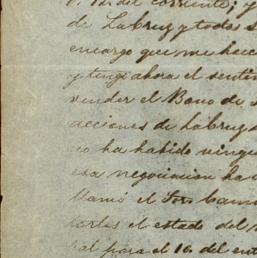 P. P. del corriente; y
de La Cruz y todos s
encargo que me hace
y tengo ahora el senti
vender el Bono de
acciones de La Cruz
no ha habido ningu
esa negociacion ha
llamó el Sor. Cam
tarles el estado del
bal para el 16 del ent